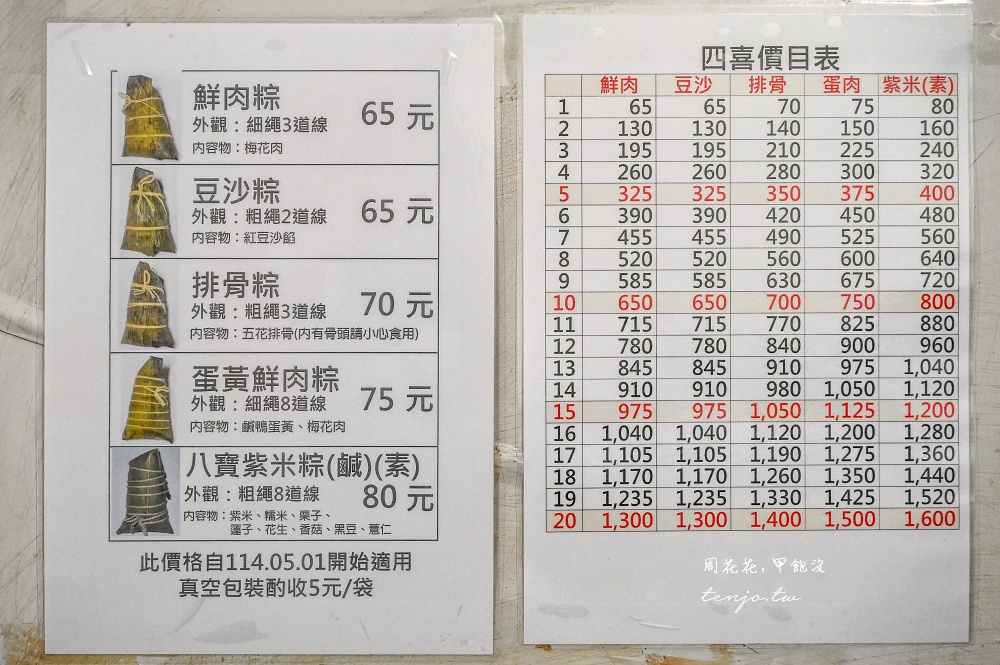 鮮肉粽
外觀：細繩3道線
65 元
內容物：梅花肉
豆沙粽
外觀：粗繩2道線
65 元
內容物：紅豆沙餡
排骨粽
外觀：粗繩3道線
70 元
內容物：五花排骨(內有骨頭請小心食用)
蛋黃鮮肉粽
外觀：細繩8道線
75 元
內容物：鹹鴨蛋黃、梅花肉
八寶紫米粽(鹹)(素)
外觀：粗繩8道線
80 元
內容物：紫米、糯米、栗子、
蓮子、花生、香菇、黑豆、薏仁
此價格自114.05.01開始適用
真空包裝酌收5元/袋
四喜價目表
鮮肉 豆沙 排骨 蛋肉 紫米(素)
1 65 65 70 75 80
2 130 130 140 150 160
3 195 195 210 225 240
4 260 260 280 300 320
5 325 325 350 375 400
6 390 390 420 450 480
7 455 455 490 525 560
8 520 520 560 600 640
9 585 585 630 675 720
10 650 650 700 750 800
11 715 715 770 825 880
12 780 780 840 900 960
13 845 845 910 975 1,040
14 910 910 980 1,050 1,120
15 975 975 1,050 1,125 1,200
16 1,040 1,040 1,120 1,200 1,280
17 1,105 1,105 1,190 1,275 1,360
18 1,170 1,170 1,260 1,350 1,440
19 1,235 1,235 1,330 1,425 1,520
20 1,300 1,300 1,400 1,500 1,600
周花花,甲飽沒
tenjo.tw